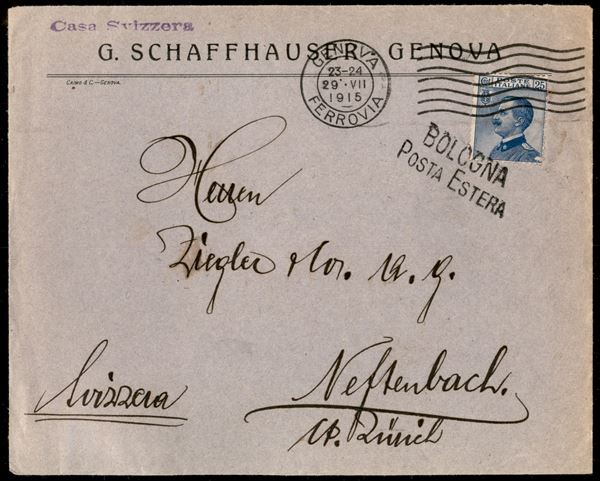 Casa Svizzera
G. SCHAFFHAUSER GENOVA
CAIMO & C. - GENOVA.
GENOVA
23-24
29 · VII
1915
FERROVIA
POSTE
ITALIANE
25
BOLOGNA
POSTA ESTERA
Herren
Ziegler & Co. A. G.
Svizzera
Neftenbach.
Ct. Zürich